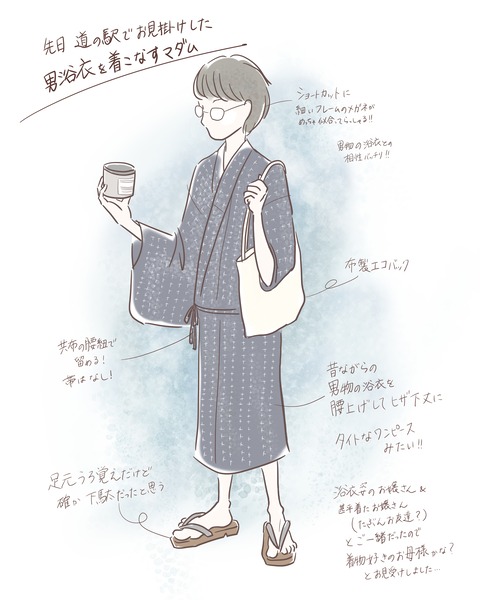 先日 道の駅でお見掛けした
男浴衣を着こなすマダム
ショートカットに
細いフレームのメガネが
めっちゃ似合ってらっしゃる!!
男物の浴衣との
相性バッチリ!!
布製エコバック
共布の腰紐で
留める!
帯はなし!
昔ながらの
男物の浴衣を
腰上げしてヒザ下丈に
タイトなワンピース
みたい!!
足元うろ覚えだけど
確か下駄だったと思う
浴衣姿のお嬢さん&
甚平着たお嬢さん
(たぶんお友達?)
とご一緒だったので
着物好きのお母様かな?
とお見受けしました…